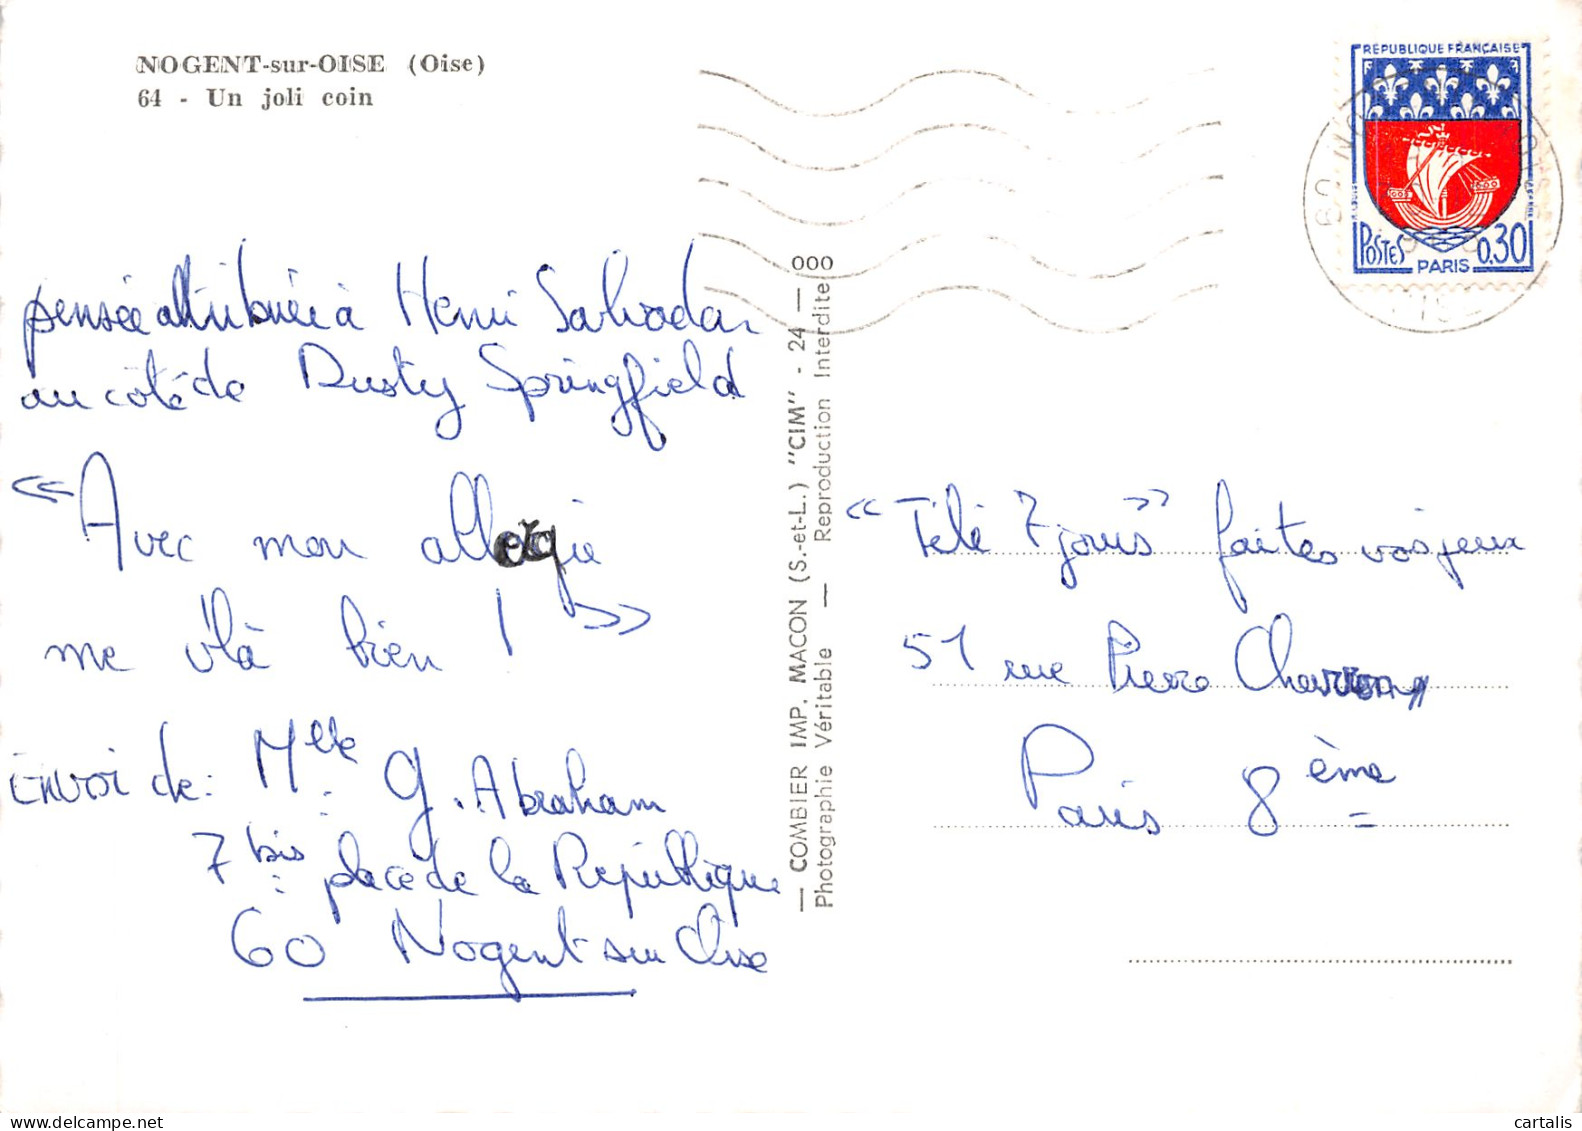 NOGENT-sur-OISE (Oise)
64 - Un joli coin
pensée attribuée à Henri Salvador
au côté de Dusty Springfield
« Avec mon allergie
me v'là bien ! »
Envoi de : Mlle G. Abraham
7 bis place de la République
60 Nogent sur Oise
— COMBIER IMP. MACON (S.-et-L.) "CIM" - 24 — 000
Photographie Véritable — Reproduction Interdite
REPUBLIQUE FRANÇAISE
POSTES 0,30
PARIS
« Télé 7 jours » faites vos jeux
51 rue Pierre Charron
Paris 8ème
cartalis